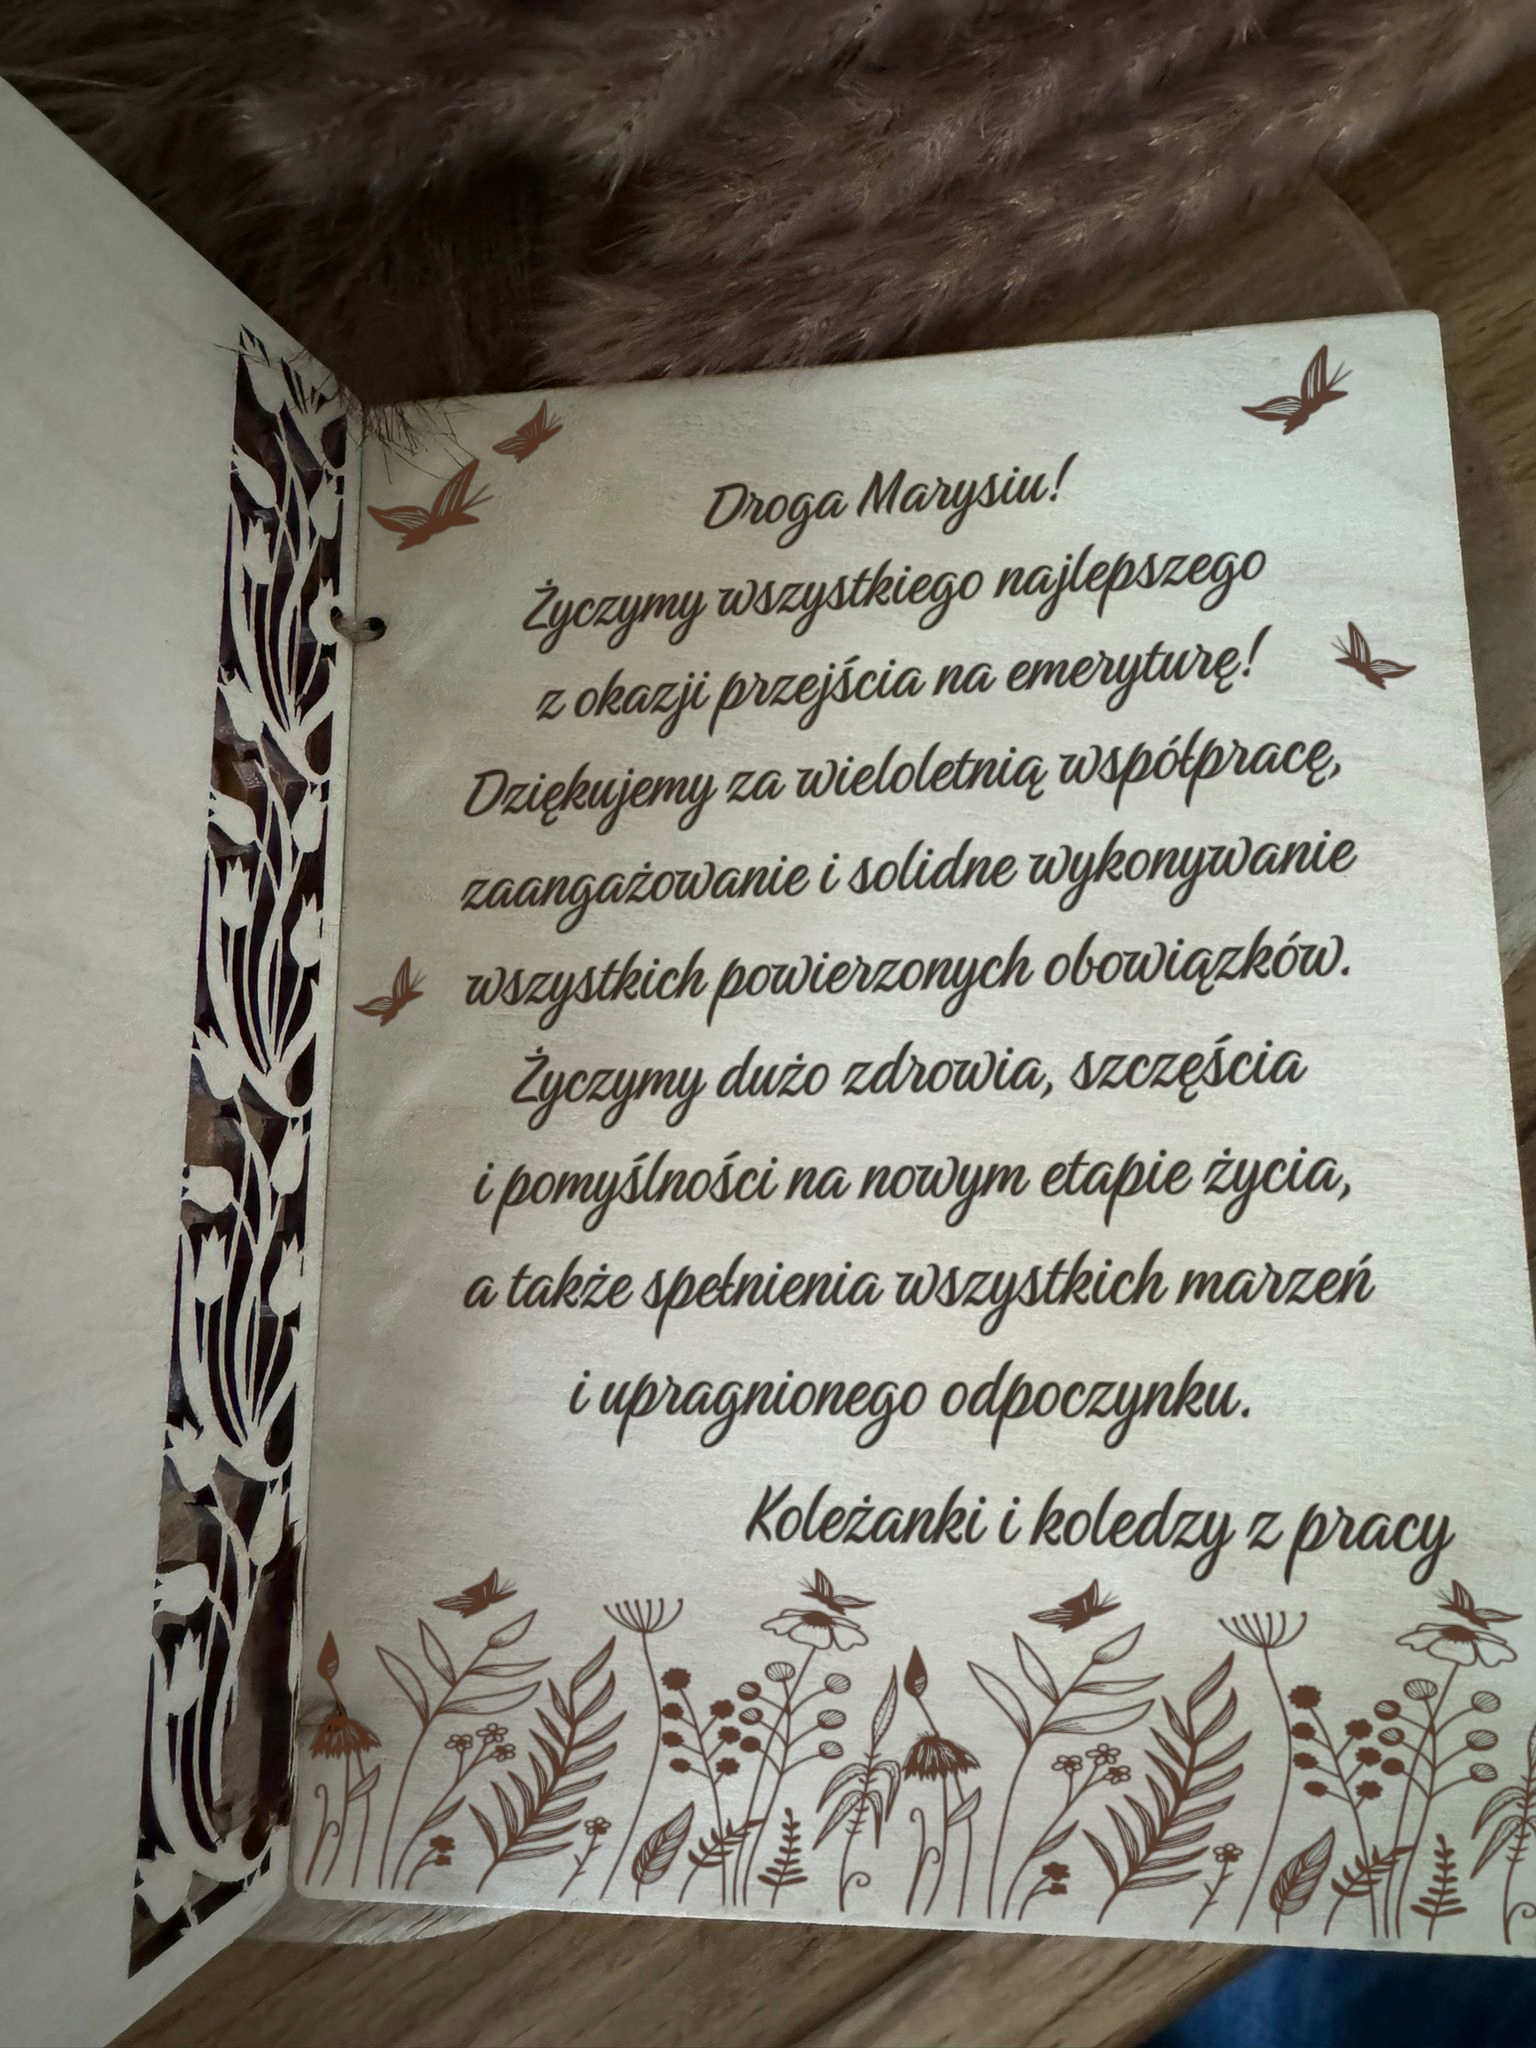 Droga Marysiu!
Życzymy wszystkiego najlepszego
z okazji przejścia na emeryturę!
Dziękujemy za wieloletnią współpracę,
zaangażowanie i solidne wykonywanie
wszystkich powierzonych obowiązków.
Życzymy dużo zdrowia, szczęścia
i pomyślności na nowym etapie życia,
a także spełnienia wszystkich marzeń
i upragnionego odpoczynku.
Koleżanki i koledzy z pracy